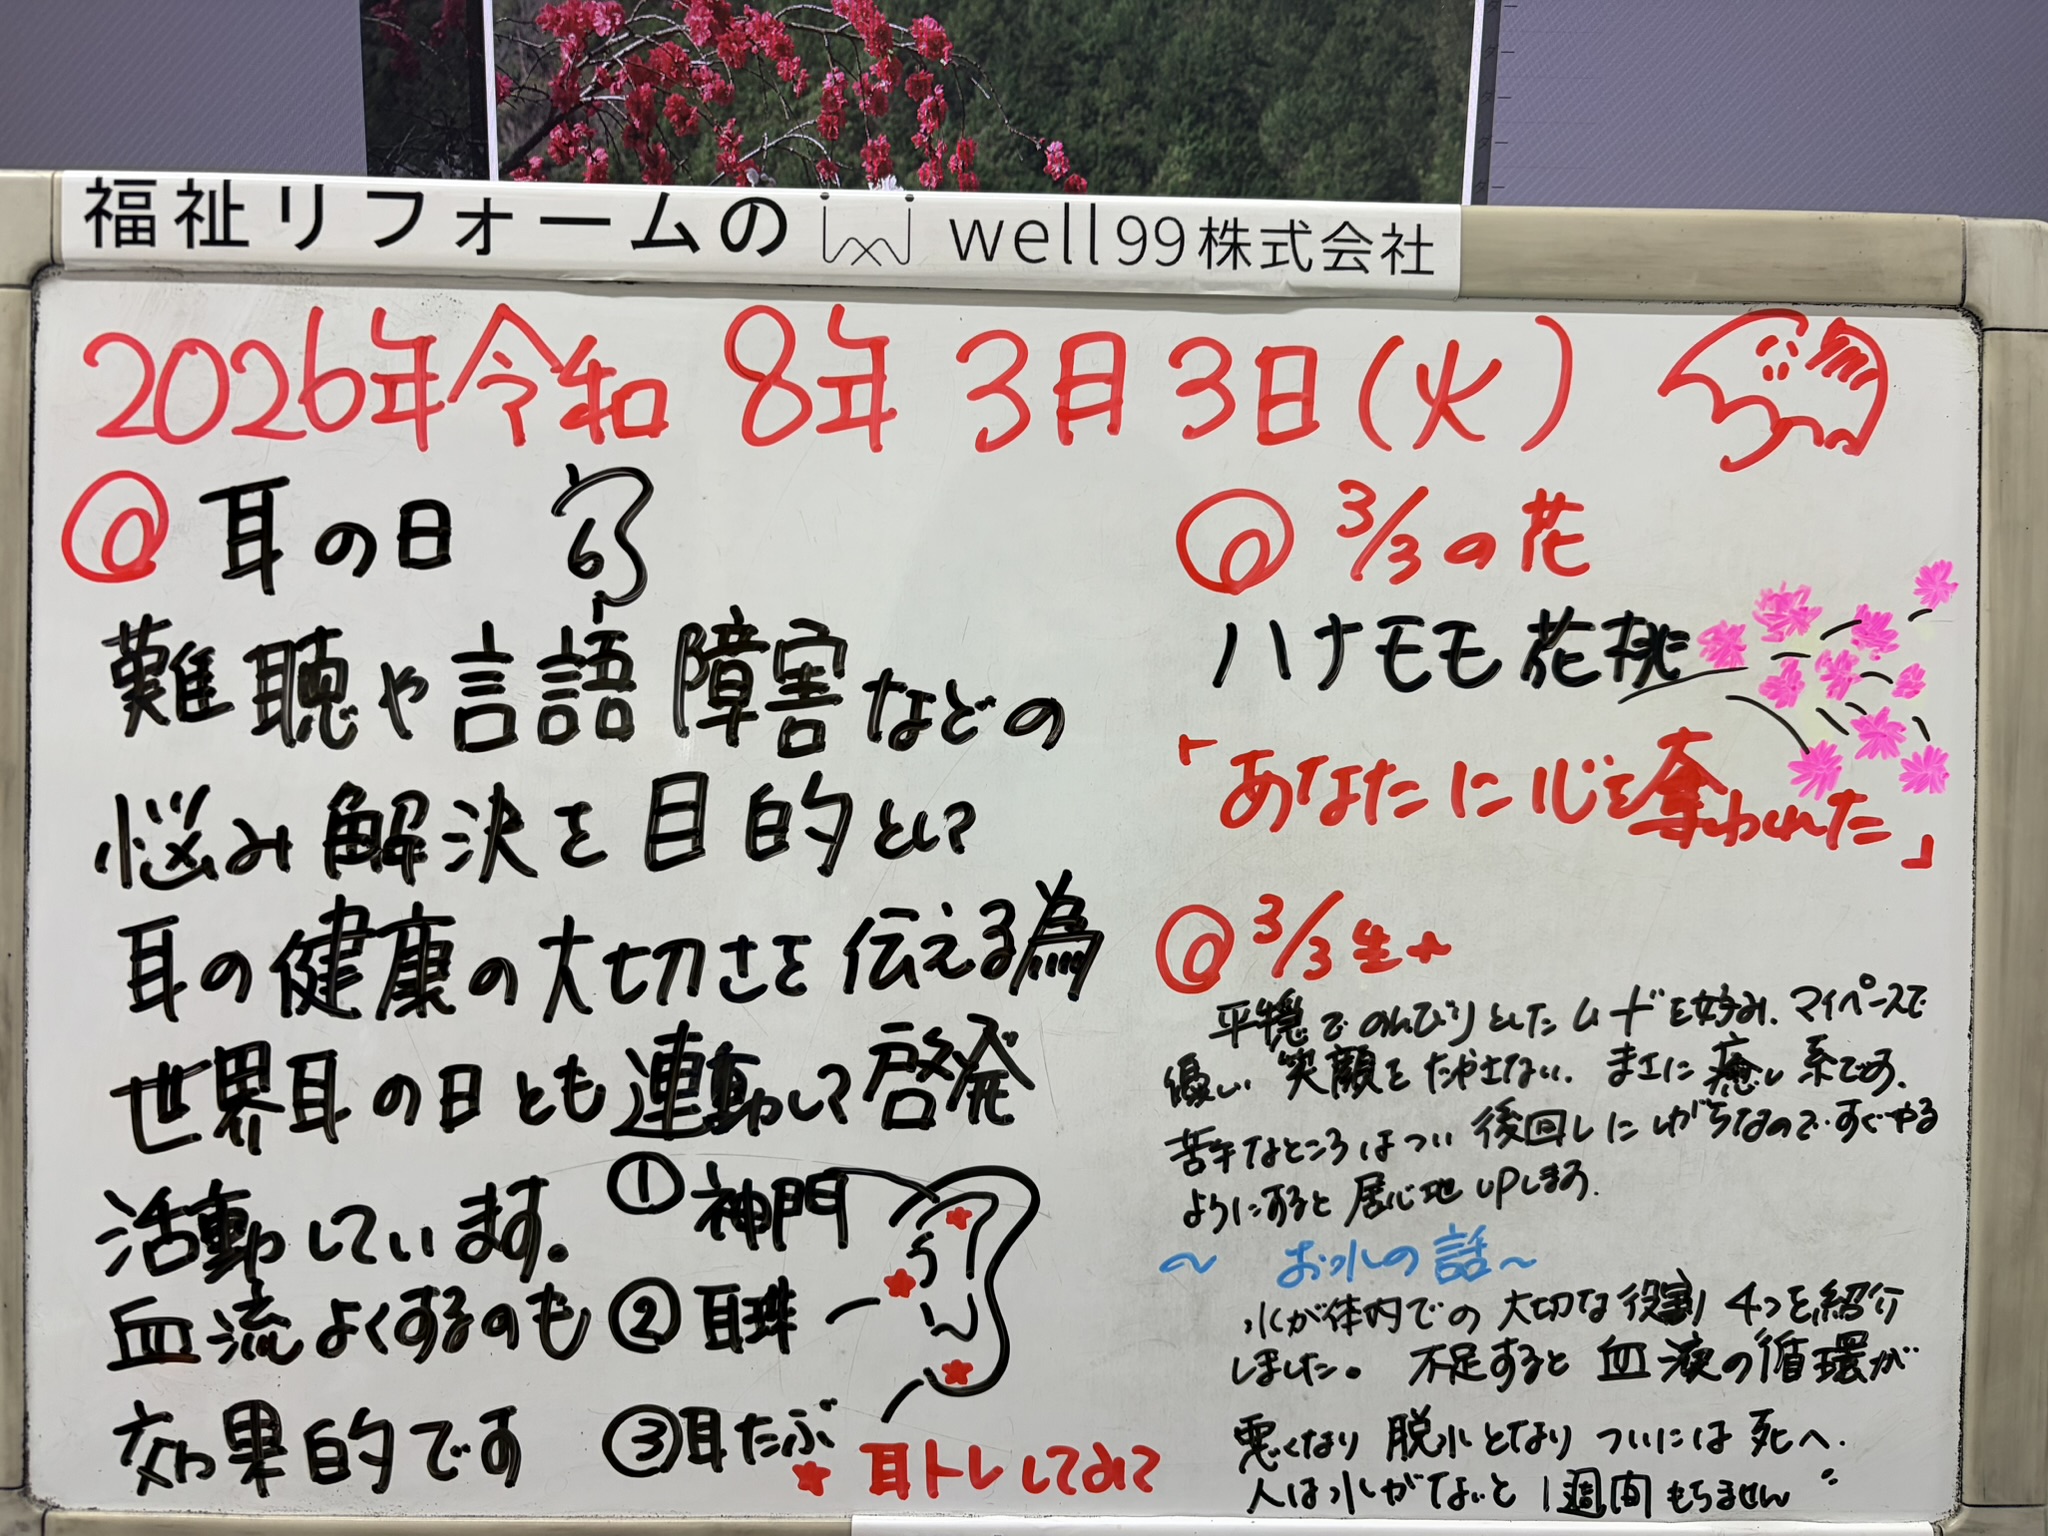 福祉リフォームの well99株式会社
2026年令和 8年 3月 3日(火)
耳の日
難聴や言語障害などの
悩み解決を目的として
耳の健康の大切さを伝える為
世界耳の日とも連動して啓発
活動しています。
血流よくするのも
効果的です
①神門
②耳珠
③耳たぶ
耳トレしてみて
3/3の花
ハナモモ 花桃
「あなたに心を奪われた」
3/3生れ
平穏でのんびりとしたムードを好み、マイペースで
優しい笑顔をたやさない、まさに癒し系です。
苦手なところはつい後回しにしがちなので、すぐやる
ようにすると居心地UPします。
〜 お水の話〜
水が体内での大切な役割4つを紹介
しました。不足すると血液の循環が
悪くなり脱水となりついには死へ.
人は水がないと1週間もちません